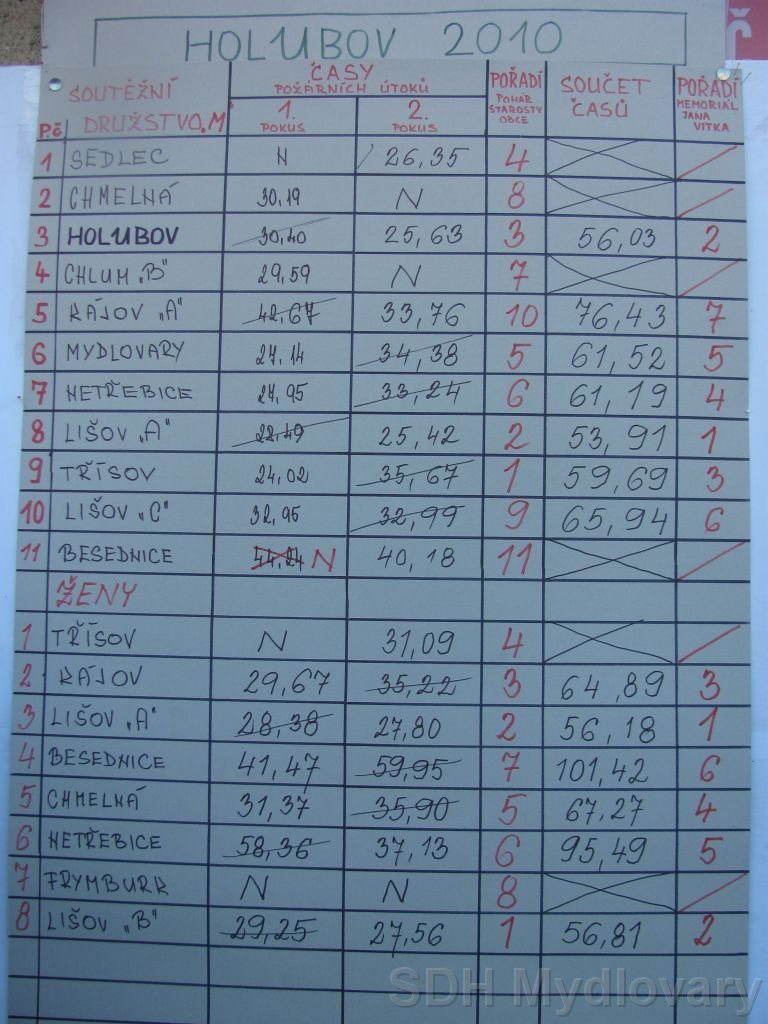 HOLUBOV 2010
P.č SOUTĚŽNÍ DRUŽSTVO,M ČASY POŽÁRNÍCH ÚTOKŮ 1. POKUS 2. POKUS POŘADÍ POHÁR STAROSTY OBCE SOUČET ČASŮ POŘADÍ MEMORIÁL JANA VITKA
1 SEDLEC N 26,35 4
2 CHMELNÁ 30,19 N 8
3 HOLUBOV 30,40 25,63 3 56,03 2
4 CHLUM „B" 29,59 N 7
5 KÁJOV „A" 42,67 33,76 10 76,43 7
6 MYDLOVARY 27,14 34,38 5 61,52 5
7 NETŘEBICE 27,95 33,24 6 61,19 4
8 LIŠOV „A" 28,49 25,42 2 53,91 1
9 TŘÍSOV 24,02 35,67 1 59,69 3
10 LIŠOV „C" 32,95 32,99 9 65,94 6
11 BESEDNICE 44,24 N 40,18 11
ŽENY
1 TŘÍSOV N 31,09 4
2 KÁJOV 29,67 35,22 3 64,89 3
3 LIŠOV „A" 28,38 27,80 2 56,18 1
4 BESEDNICE 41,47 59,95 7 101,42 6
5 CHMELNÁ 31,37 35,90 5 67,27 4
6 NETŘEBICE 58,36 37,13 6 95,49 5
7 FRYMBURK N N 8
8 LIŠOV „B" 29,25 27,56 1 56,81 2
SDH Mydlovary